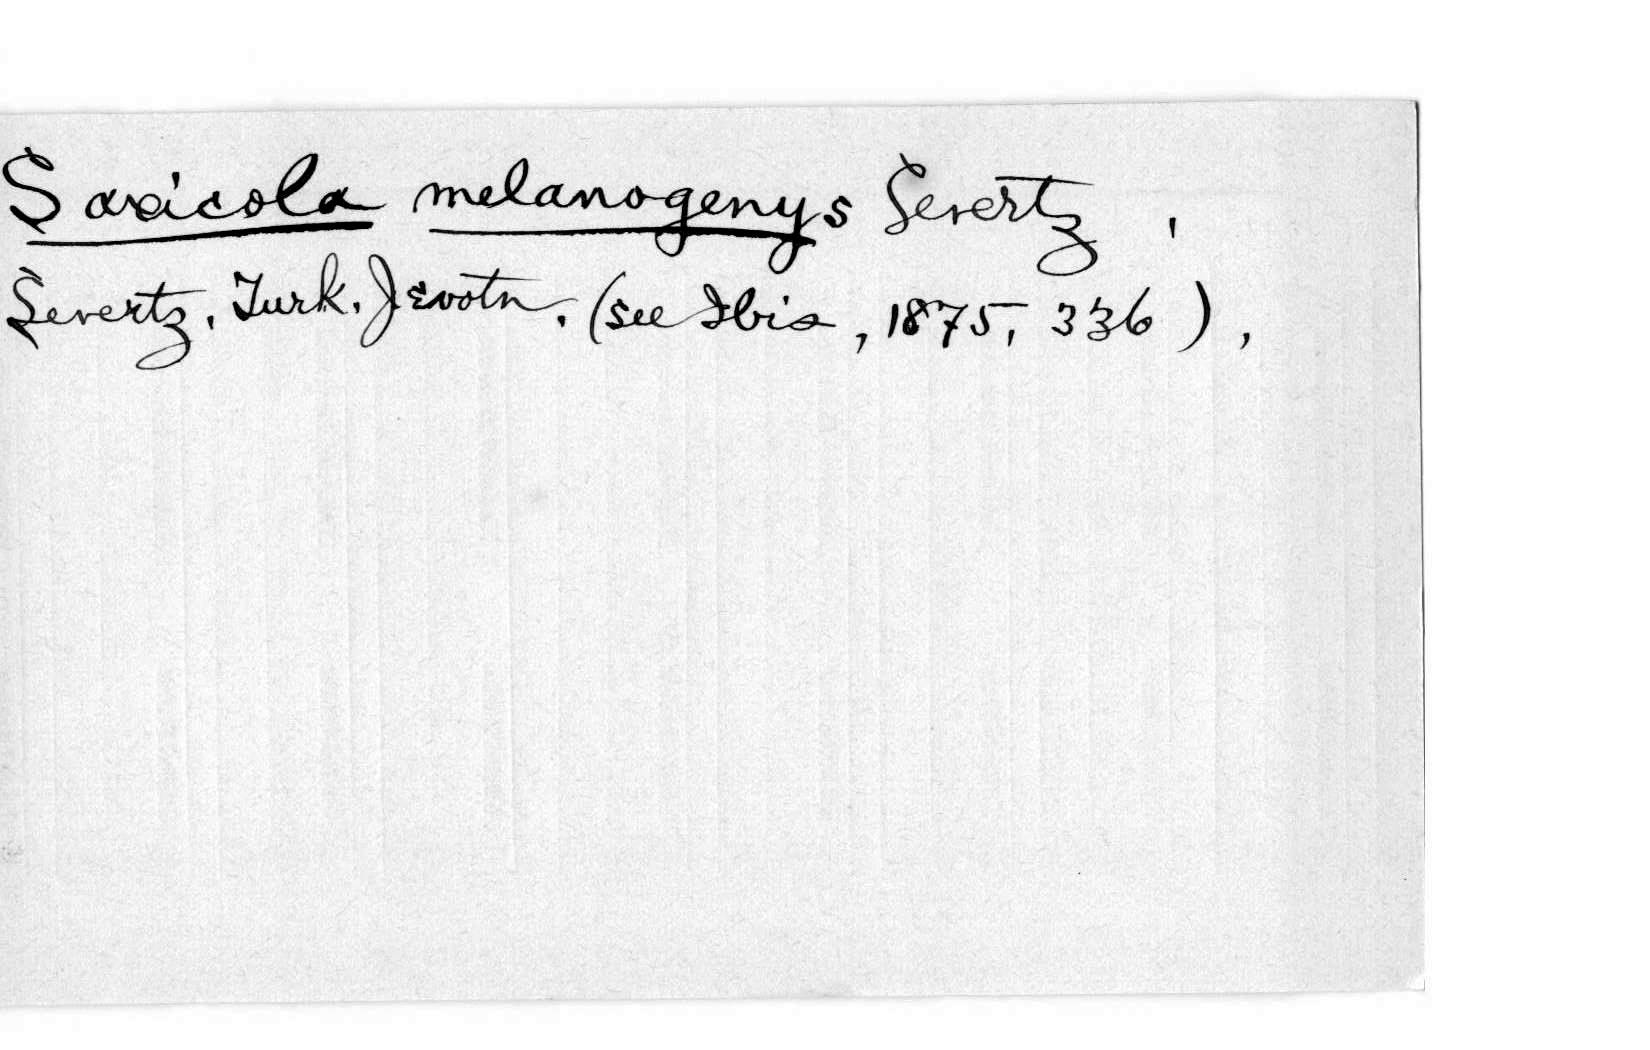 Saxicola melanogenys Severtz,
Severtz, Turk. Jevotn. (see Ibis, 1875, 336),